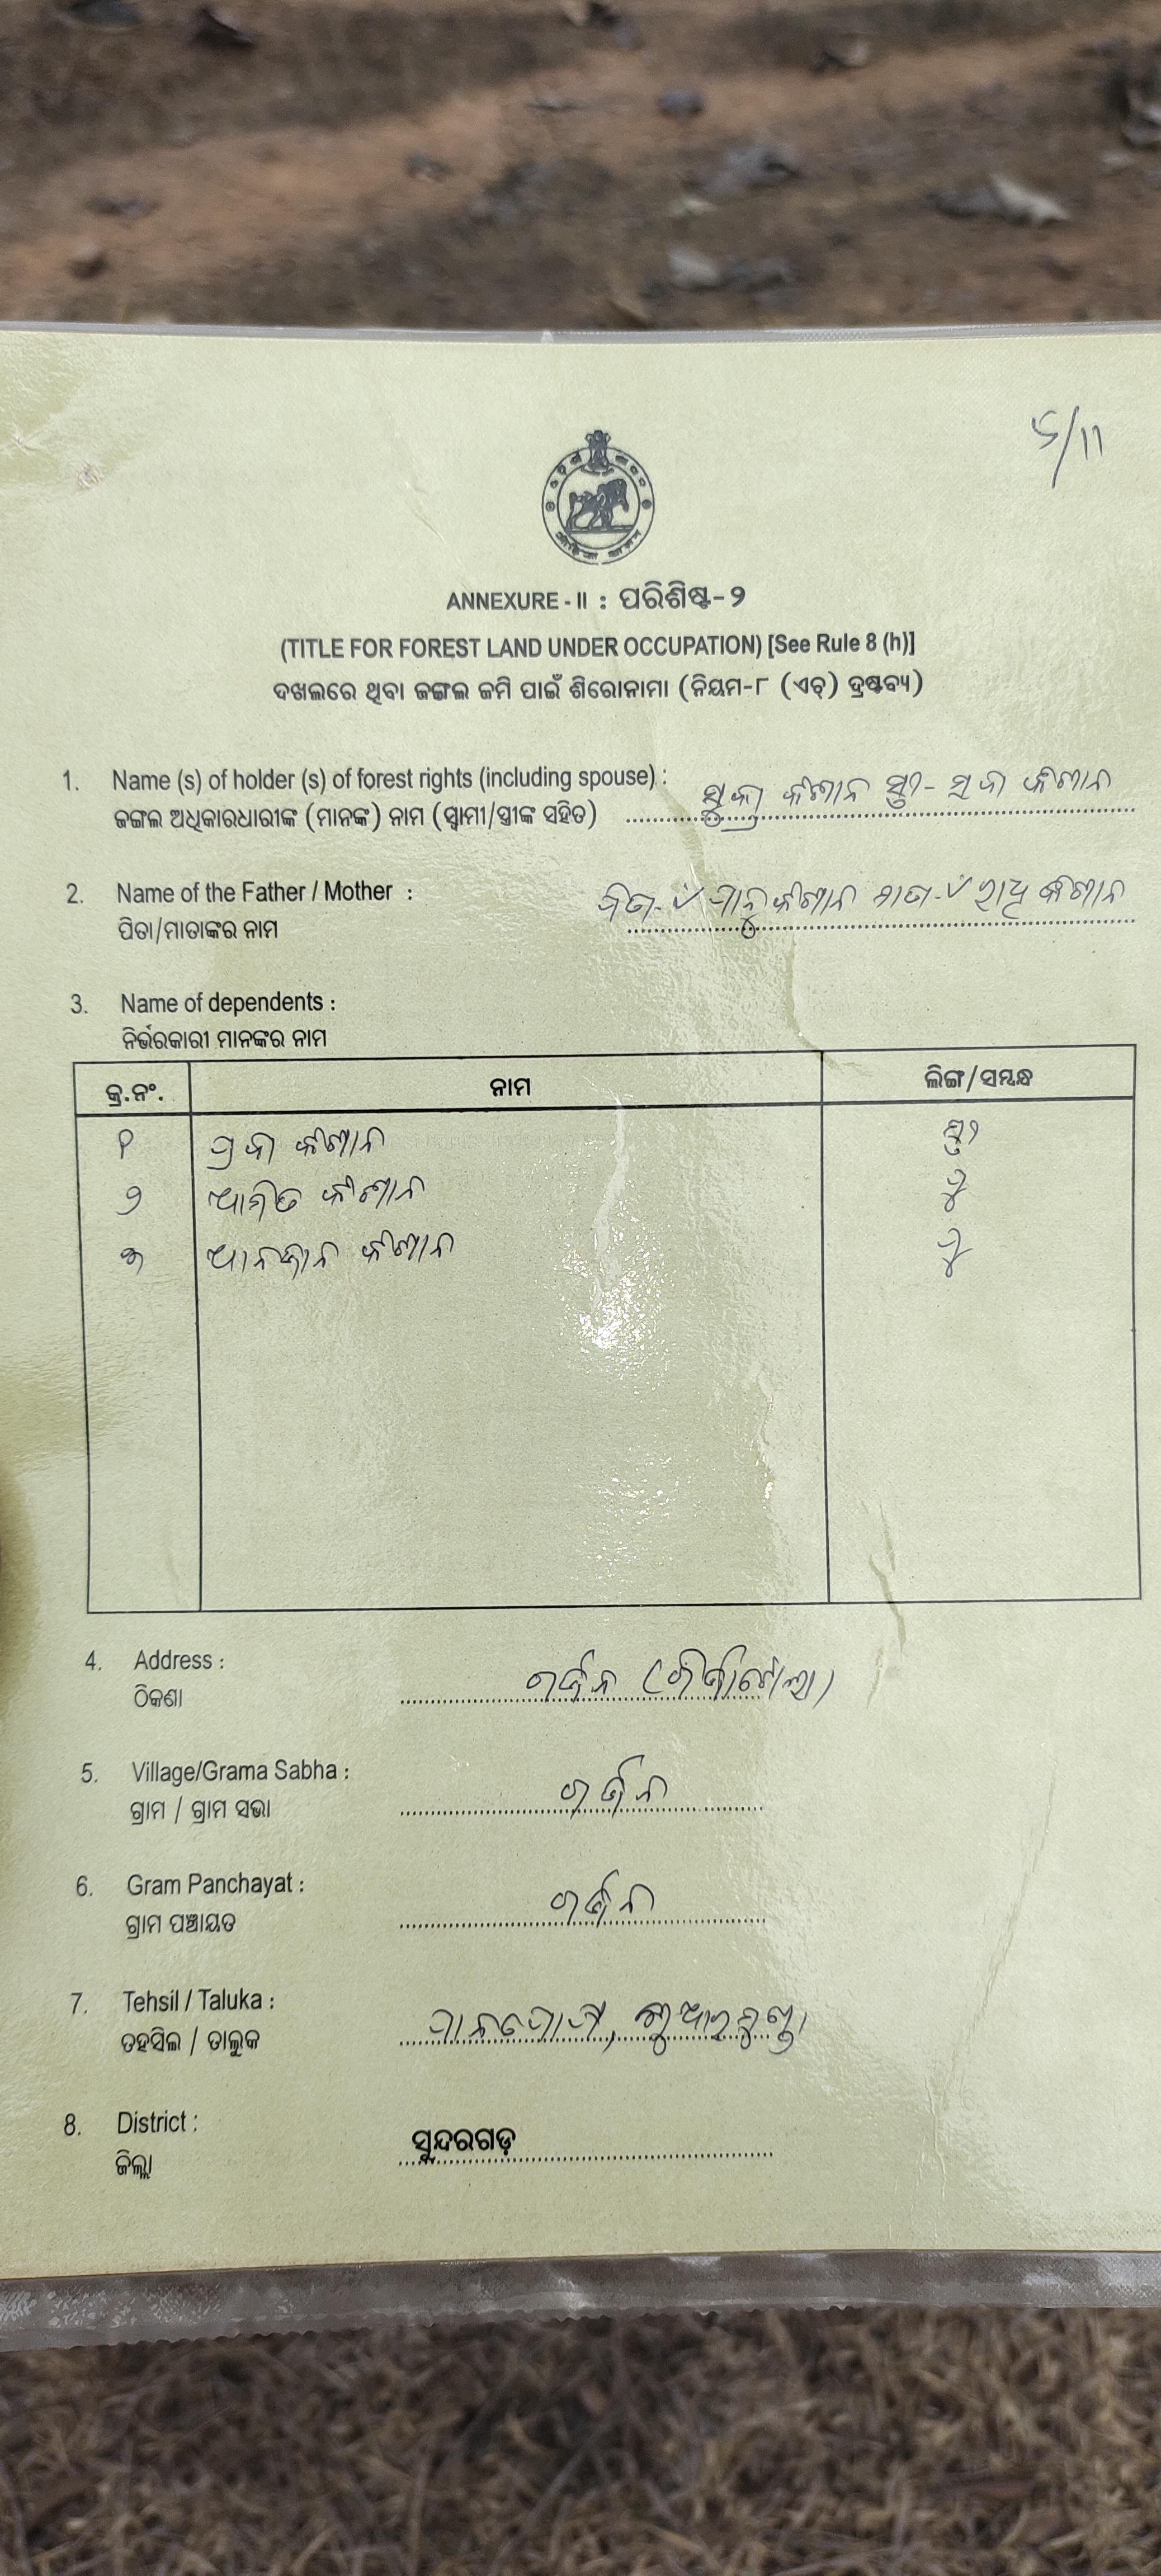 ୫/୩୩
ANNEXURE - II : ପରିଶିଷ୍ଟ-୨
(TITLE FOR FOREST LAND UNDER OCCUPATION) [See Rule 8 (h)]
ଦଖଲରେ ଥିବା ଜଙ୍ଗଲ ଜମି ପାଇଁ ଶିରୋନାମା (ନିୟମ-୮ (ଏଚ୍) ଦ୍ରଷ୍ଟବ୍ୟ)
1. Name (s) of holder (s) of forest rights (including spouse) :
ଜଙ୍ଗଲ ଅଧିକାରଧାରୀଙ୍କ (ମାନଙ୍କ) ନାମ (ସ୍ୱାମୀ/ସ୍ତ୍ରୀଙ୍କ ସହିତ) କିଶାନ ସ୍ତ୍ରୀ- କିଶାନ
2. Name of the Father / Mother :
ପିତା/ମାତାଙ୍କର ନାମ ପିତା- କିଶାନ ମାତା- କିଶାନ
3. Name of dependents :
ନିର୍ଭରକାରୀ ମାନଙ୍କର ନାମ
କ୍ର.ନଂ. ନାମ ଲିଙ୍ଗ/ସମ୍ବନ୍ଧ
୧ କିଶାନ ସ୍ତ୍ରୀ
୨ କିଶାନ ପୁ
୩ କିଶାନ ପୁ
4. Address :
ଠିକଣା
5. Village/Grama Sabha :
ଗ୍ରାମ / ଗ୍ରାମ ସଭା
6. Gram Panchayat :
ଗ୍ରାମ ପଞ୍ଚାୟତ
7. Tehsil / Taluka :
ତହସିଲ / ତାଲୁକ
8. District :
ଜିଲ୍ଲା ସୁନ୍ଦରଗଡ଼